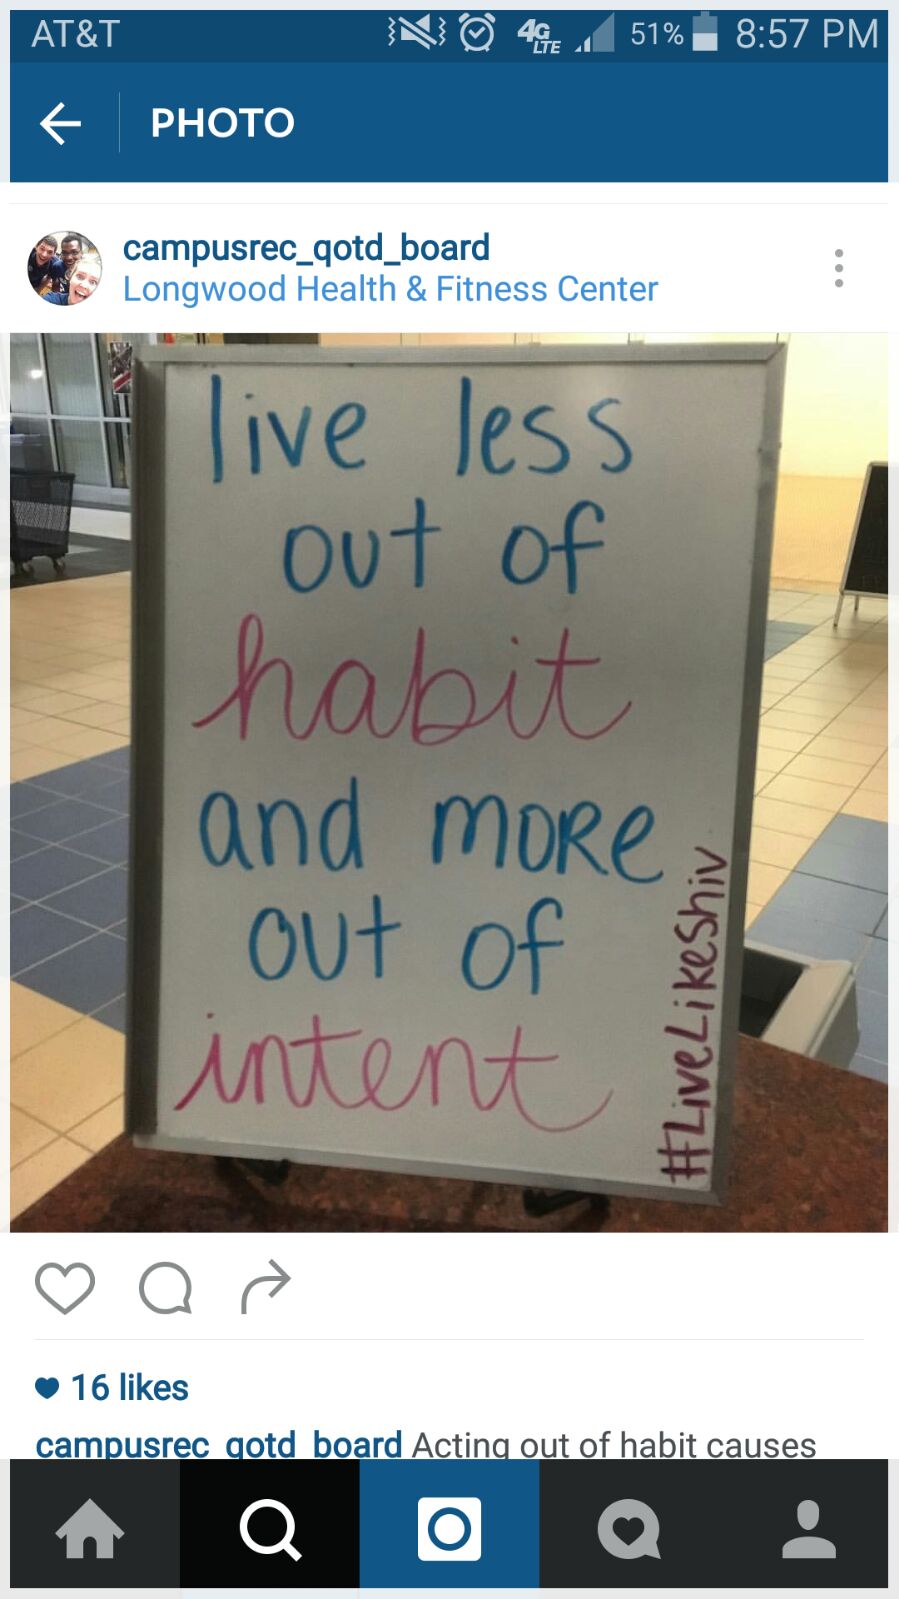 AT&T 4G LTE 51% 8:57 PM
PHOTO
campusrec_qotd_board
Longwood Health & Fitness Center
live less
out of
habit
and more
out of
intent
#LiveLikeShiv
16 likes
campusrec_qotd_board Acting out of habit causes